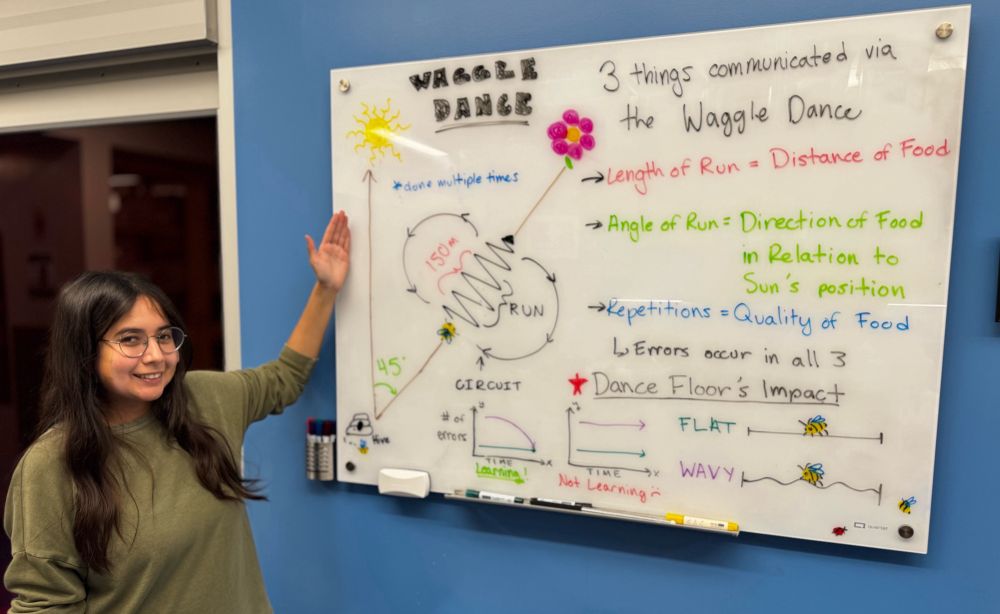 WAGGLE
DANCE
3 things communicated via
the Waggle Dance
*done multiple times
→Length of Run = Distance of Food
→Angle of Run = Direction of Food
in Relation to
Sun's position
→Repetitions = Quality of Food
↳Errors occur in all 3
150m
RUN
45°
CIRCUIT
Hive
★ Dance Floor's Impact
y
# of
errors
TIME
x
Learning!
y
TIME
x
Not Learning
FLAT
WAVY